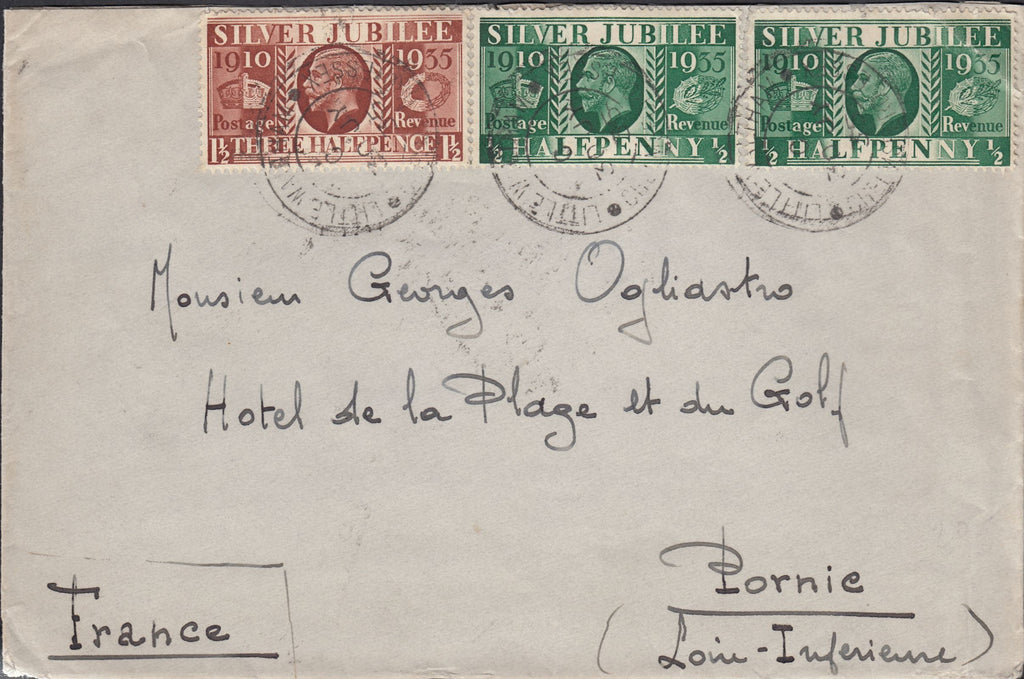 SILVER JUBILEE
1910 1935
Postage Revenue
1½ THREE HALFPENCE 1½
SILVER JUBILEE
1910 1935
Postage Revenue
½ HALFPENNY ½
SILVER JUBILEE
1910 1935
Postage Revenue
½ HALFPENNY ½
LITTLE
LITTLE
LITTLE
Monsieur Georges Ogliastro
Hotel de la Plage et du Golf
Pornic
France
(Loire-Inferieure)